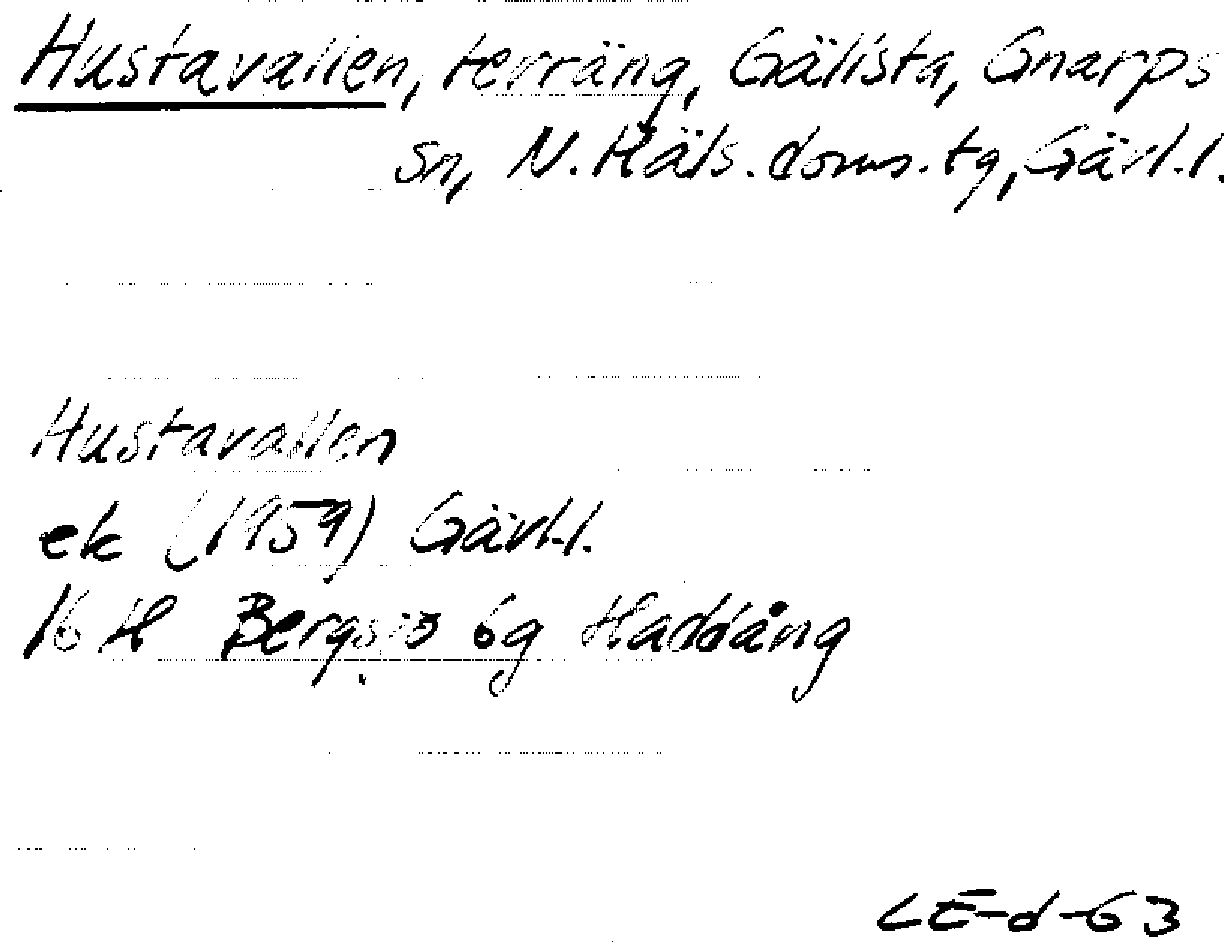 Hustavallen, terräng, Gällsta, Gnarps
sn, N. Häls. doms. tg, Gävl. l.
Hustavallen
ek (1959) Gävl. l.
16 H Bergsjö 6g Haddång
LE-d-63